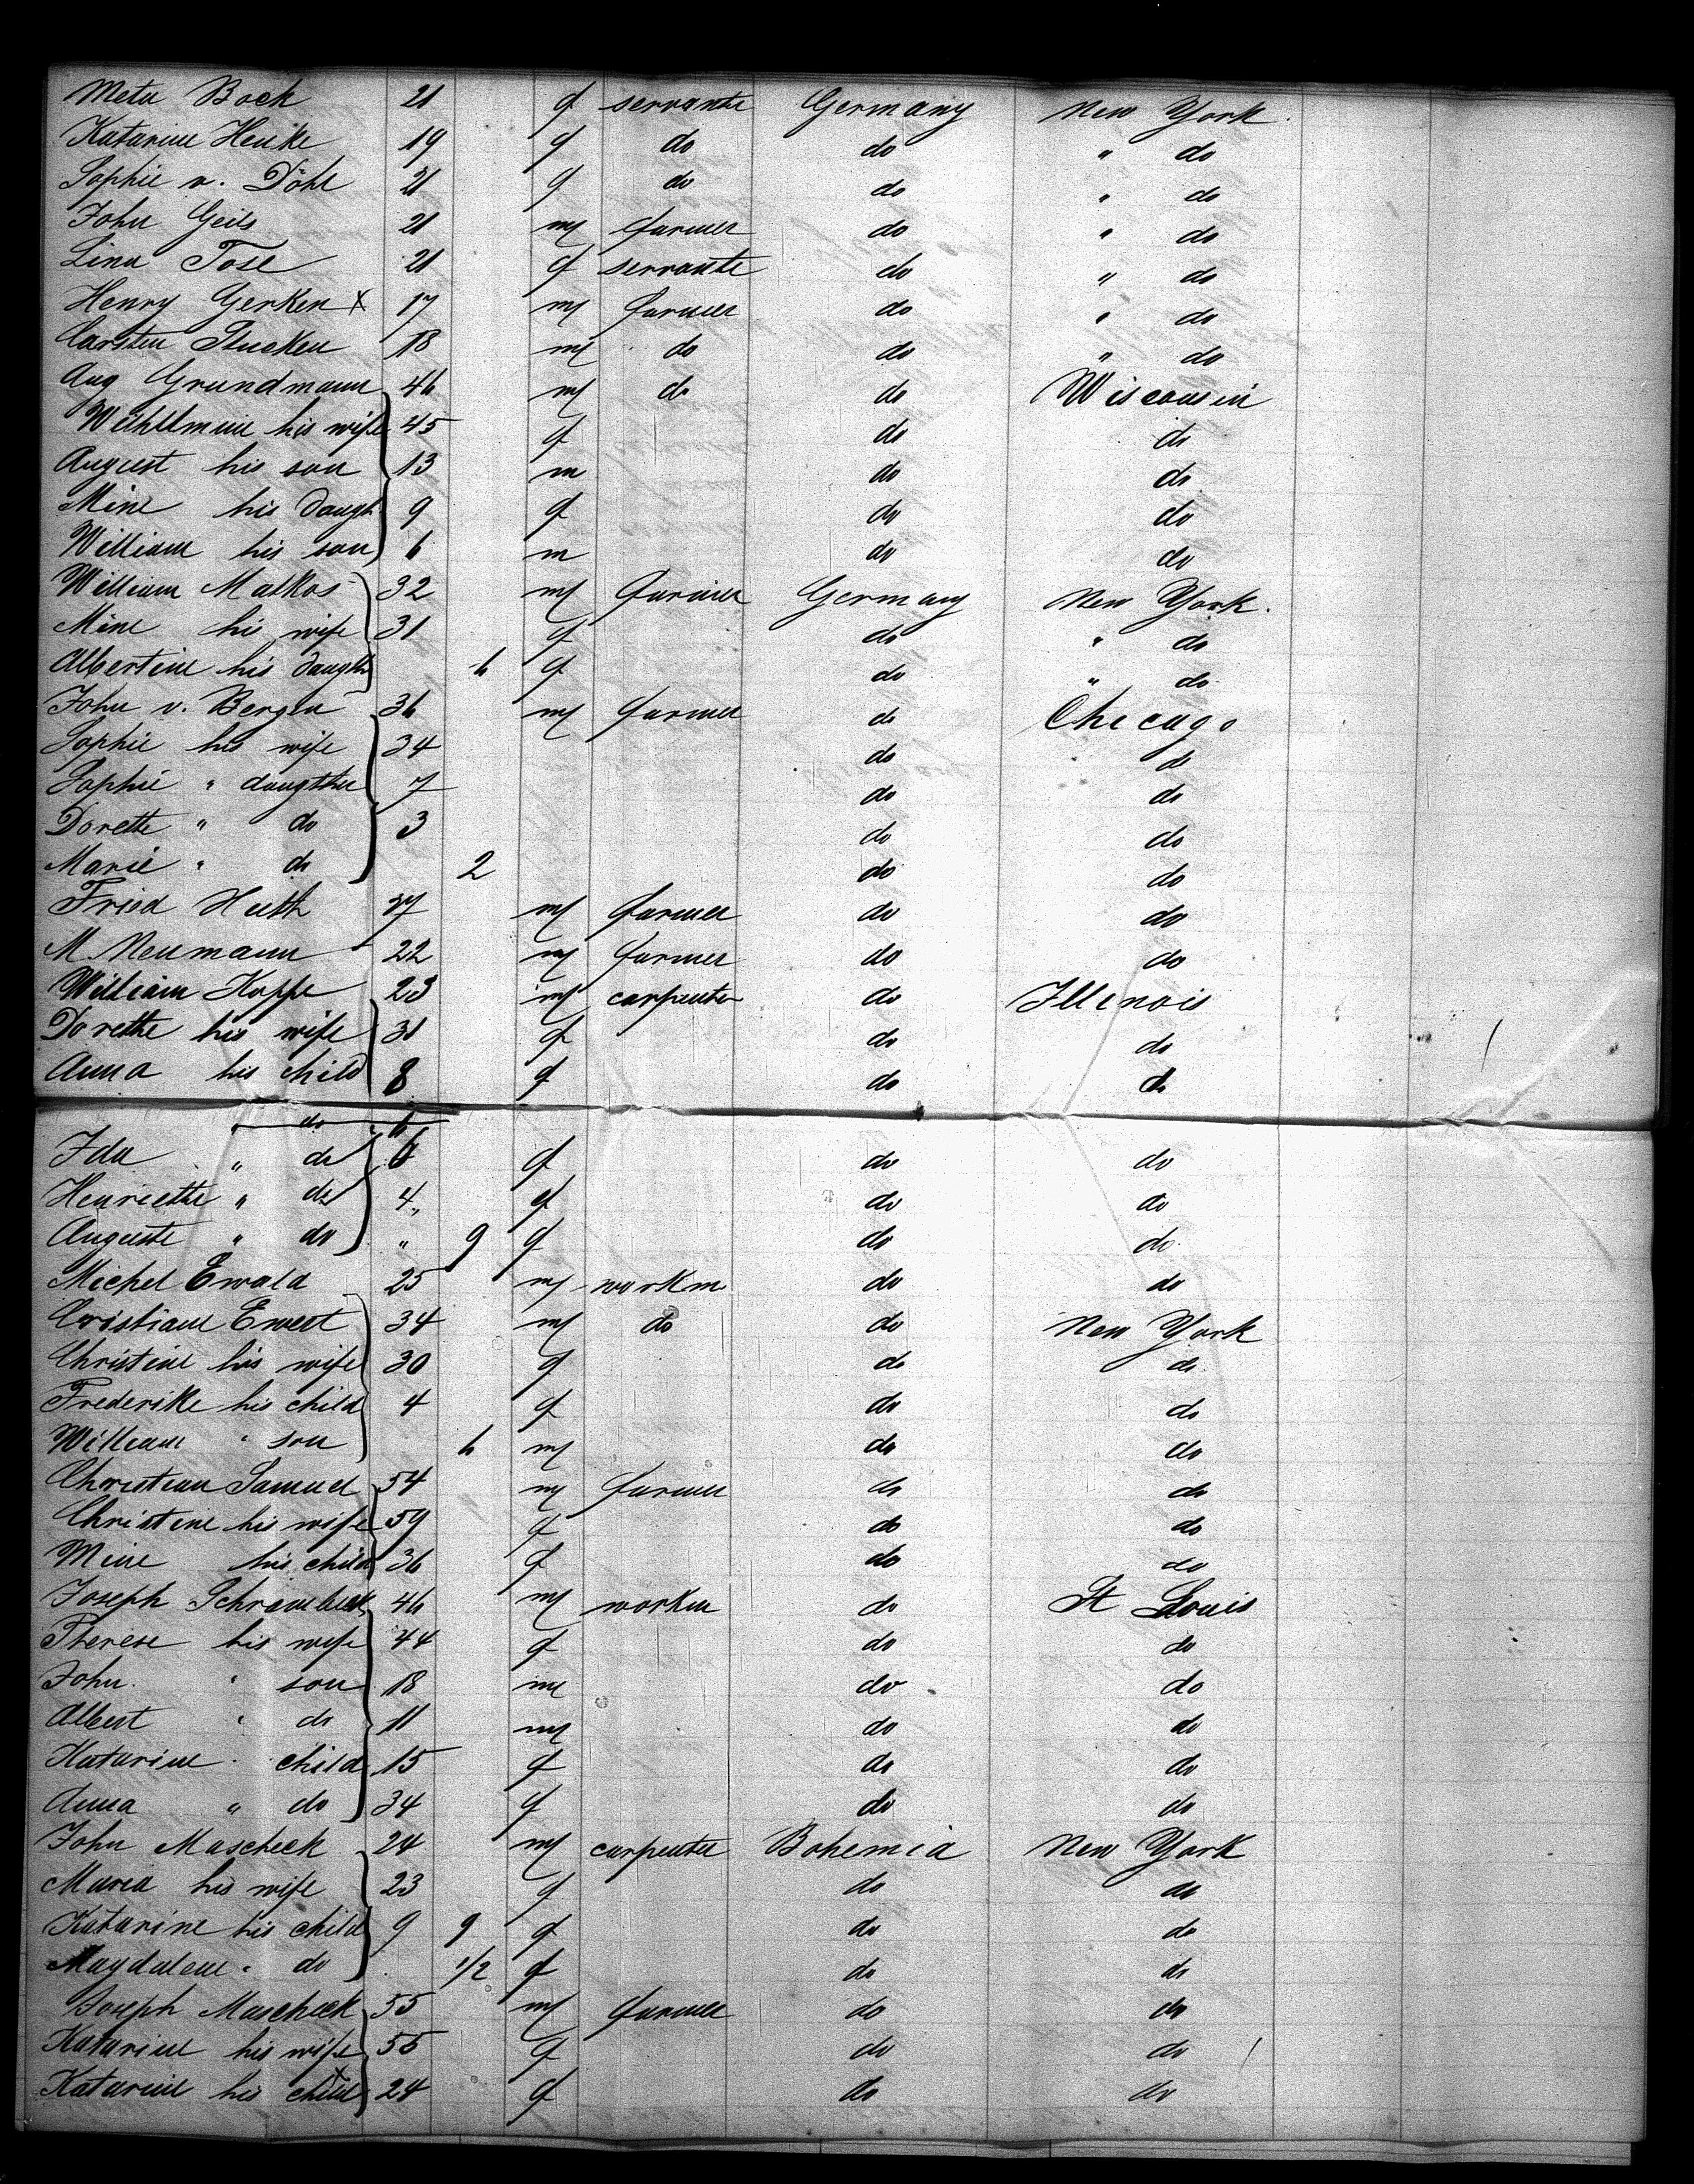 Meta Bock 21 f servante Germany New York.
Katarine Henke 19 f do do " do
Sophie v. Döhl 21 f do do " do
John Geils 21 m farmer do " do
Lina Tose 21 f servante do " do
Henry Gerken x 17 m farmer do " do
Carsten Stucken 18 m do do " do
Aug Grundmann 46 m do do Wisconsin
Wilhelmine his wife 45 f do do
August his son 13 m do do
Mine his daugh 9 f do do
William his son 6 m do do
William Malkos 32 m farmer Germany New York.
Mine his wife 31 f do " do
Albertine his daugth 6 f do " do
John v. Bergen 36 m farmer do Chicago
Sophie his wife 34 do do
Sophie " daugther 7 do do
Dorette " do 3 do do
Marie " do 2 do do
Fried Huth 37 m farmer do do
M. Neumann 22 m farmer do do
William Hoppe 23 m carpenter do Illenois
Dorette his wife 31 f do do
Anna his child 8 f do do
" do 6
Ida " do 6 f do do
Henriette " do 4 f do do
Auguste " do " 9 f do do
Michel Ewald 25 m workm do do
Cristiane Ewert 34 m do do New York
Christine his wife 30 f do do
Frederike his child 4 f do do
William " son 6 m do do
Christian Samuel 54 m farmer do do
Christine his wife 59 f do do
Mine his child 36 f do do
Joseph 46 m workm do St Louis
Therese his wife 44 f do do
John " son 18 m do do
Albert " do 11 m do do
Katarine " child 15 f do do
Anna " do 34 f do do
John Mascheck 24 m carpenter Bohemia New York
Maria his wife 23 f do do
Katarine his child 9 9 f do do
Magdalene " do 1/2 f do do
Joseph Mascheck 55 m farmer do do
Katarine his wife 55 f do do
Katarine his child 24 f do do